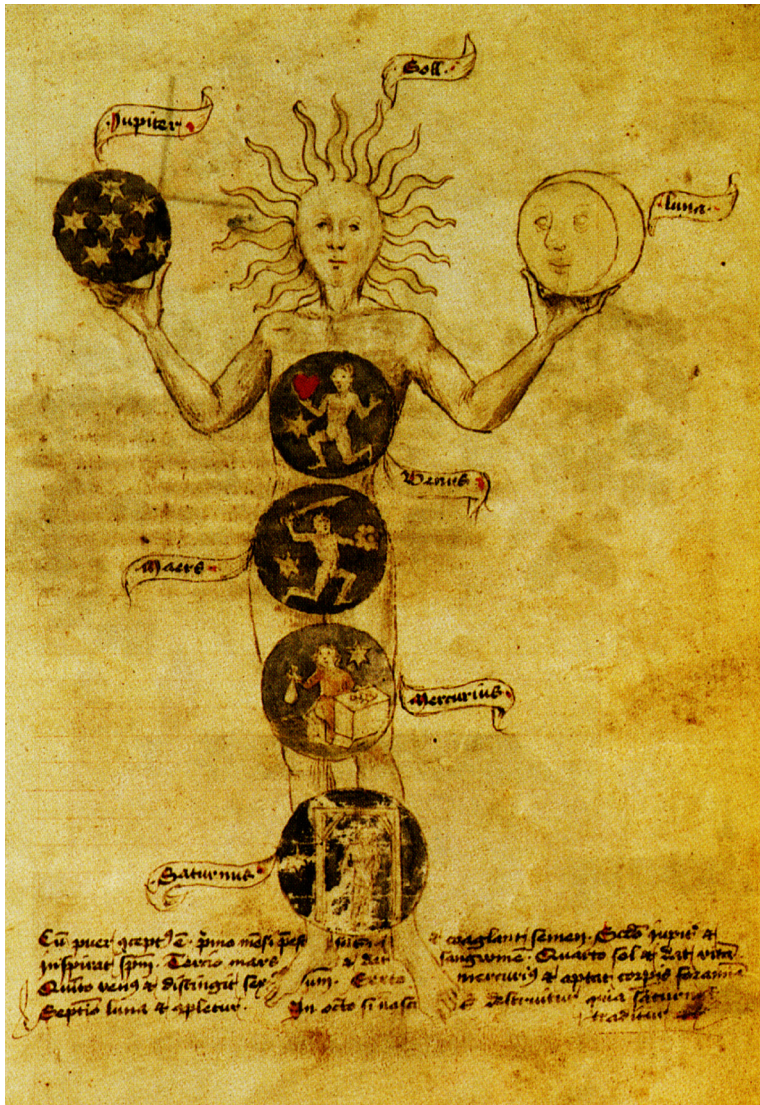 Soll
Jupiter
luna
Venus
Mars
Mercurius
Saturnus
Cū puer ꝯcept⁹ ē. pͥmo mēsi & coaglanti semen. Scđo iupit⁹ &
inspirat spm̄. Tercio mars & dat sangwinē. Quarto sol & dat vitā.
Quīto ven⁹ & distingit sex sum. Sexto mercuri⁹ & aptat corpis foramīa
Septīo luna & ꝯpletur. In octo si nasci & destruitur quia saturn⁹
traditur